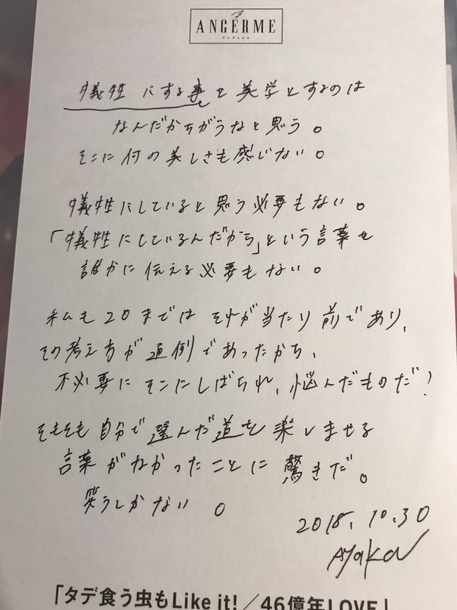 ANGERME
アンジュルム
犠牲にする事を美学とするのは
なんだかちがうなと思う。
そこに何の美しさも感じない。
犠牲にしていると思う必要もない。
「犠牲にしているんだから」という言葉を
誰かに伝える必要もない。
私も20まではそれが当たり前であり、
その考え方が通例であったから、
不必要にそこにしばられ、悩んだものだ!
そもそも自分で選んだ道を楽しませる
言葉がなかったことに驚きだ。
笑うしかない。
2018.10.30
Ayaka
「タデ食う虫もLike it!/46億年LOVE」